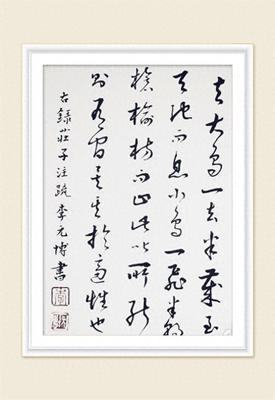 夫大鳥一去半歲至
天池而息小鳥一飛半朝
搶榆枋而止此比所能
則有間矣其於適性也
右錄莊子注疏 李元博書